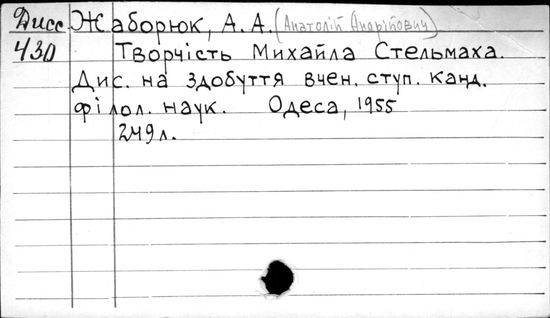 Дисс. Жаборюк, А. А. (Анатолій Андрійович)
430 Творчість Михайла Стельмаха.
Дис. на здобуття вчен. ступ. канд.
філол. наук. Одеса, 1955
249 л.